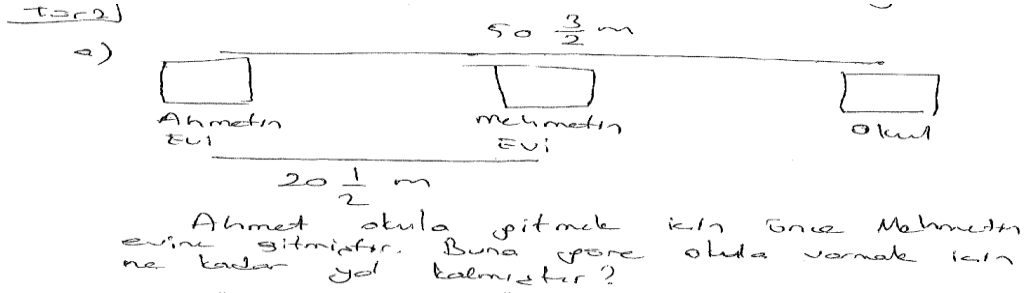 a)
50 3/2 m
Ahmetin Evi
Mehmetin Evi
Okul
20 1/2 m
Ahmet okula gitmek için önce Mehmetin
evine gitmiştir. Buna göre okula varmak için
ne kadar yol kalmıştır?